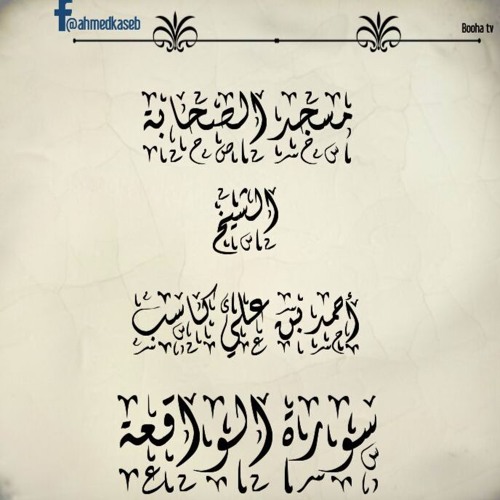 f@ahmedkaseb
Booha tv
مسجد الصحابة
الشيخ
أحمد بن علي كاسب
سورة الواقعة